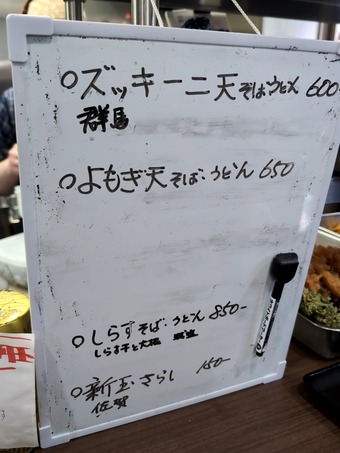 ○ズッキーニ天そばうどん 600-
群馬
○よもぎ天そば・うどん 650
○しらすそば・うどん 850-
しらす干と大根
○新玉さらし 150-
佐賀